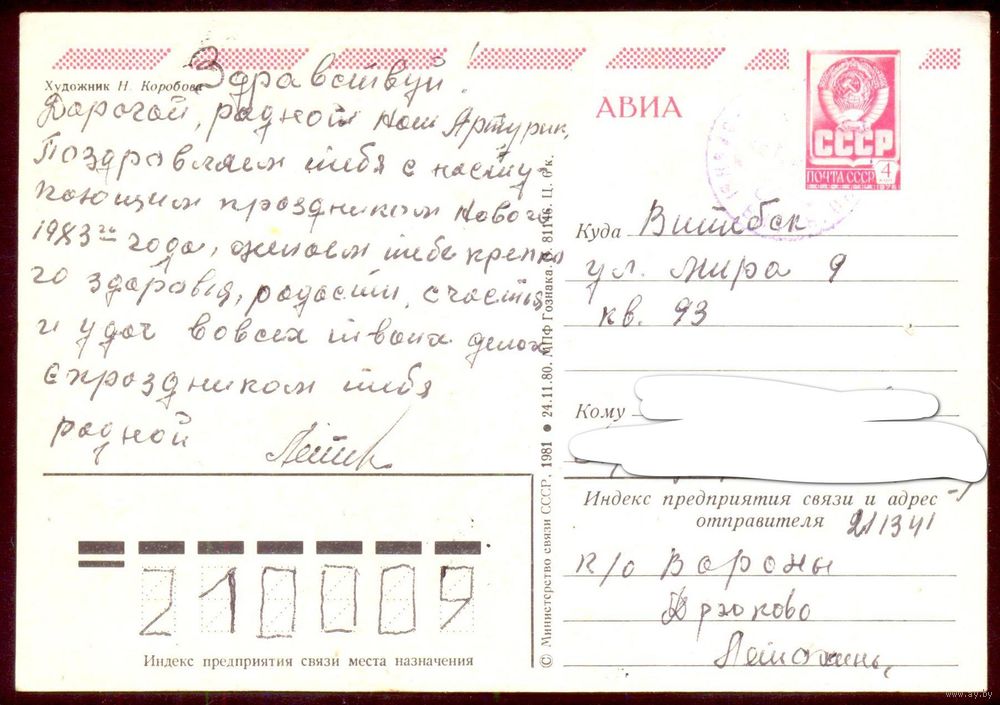 Художник Н. Коробова
Здравствуй!
Дарогой, родной наш Артурик,
Поздравляем тебя с насту-
пающим праздником Нового
1983го года, желаем тебе крепко
го здоровья, радости, счастья
и удач вовсех твоих делах
с праздником тебя
родной
АВИА
СССР
ПОЧТА СССР 4
Куда Витебск
ул. Мира 9
кв. 93
Кому
Индекс предприятия связи и адрес
отправителя 211341
п/о Вороны
© Министерство связи СССР, 1981 ● 24.11.80. МПФ Гознака. З. 81146. Ц. 6к.
210009
Индекс предприятия связи места назначения
www.ay.by